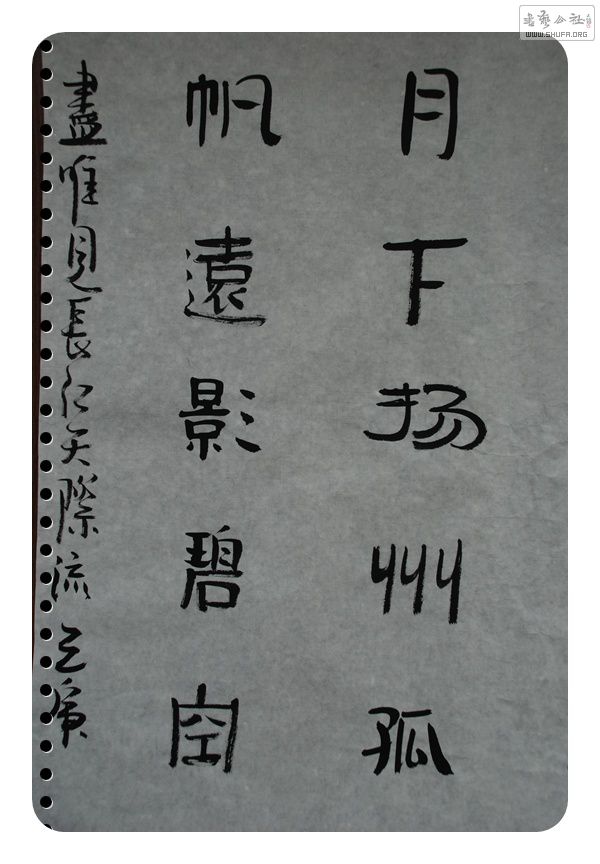 月下扬州孤
帆遠影碧空
盡唯見長江天際流
書藝公社
WWW.SHUFA.ORG